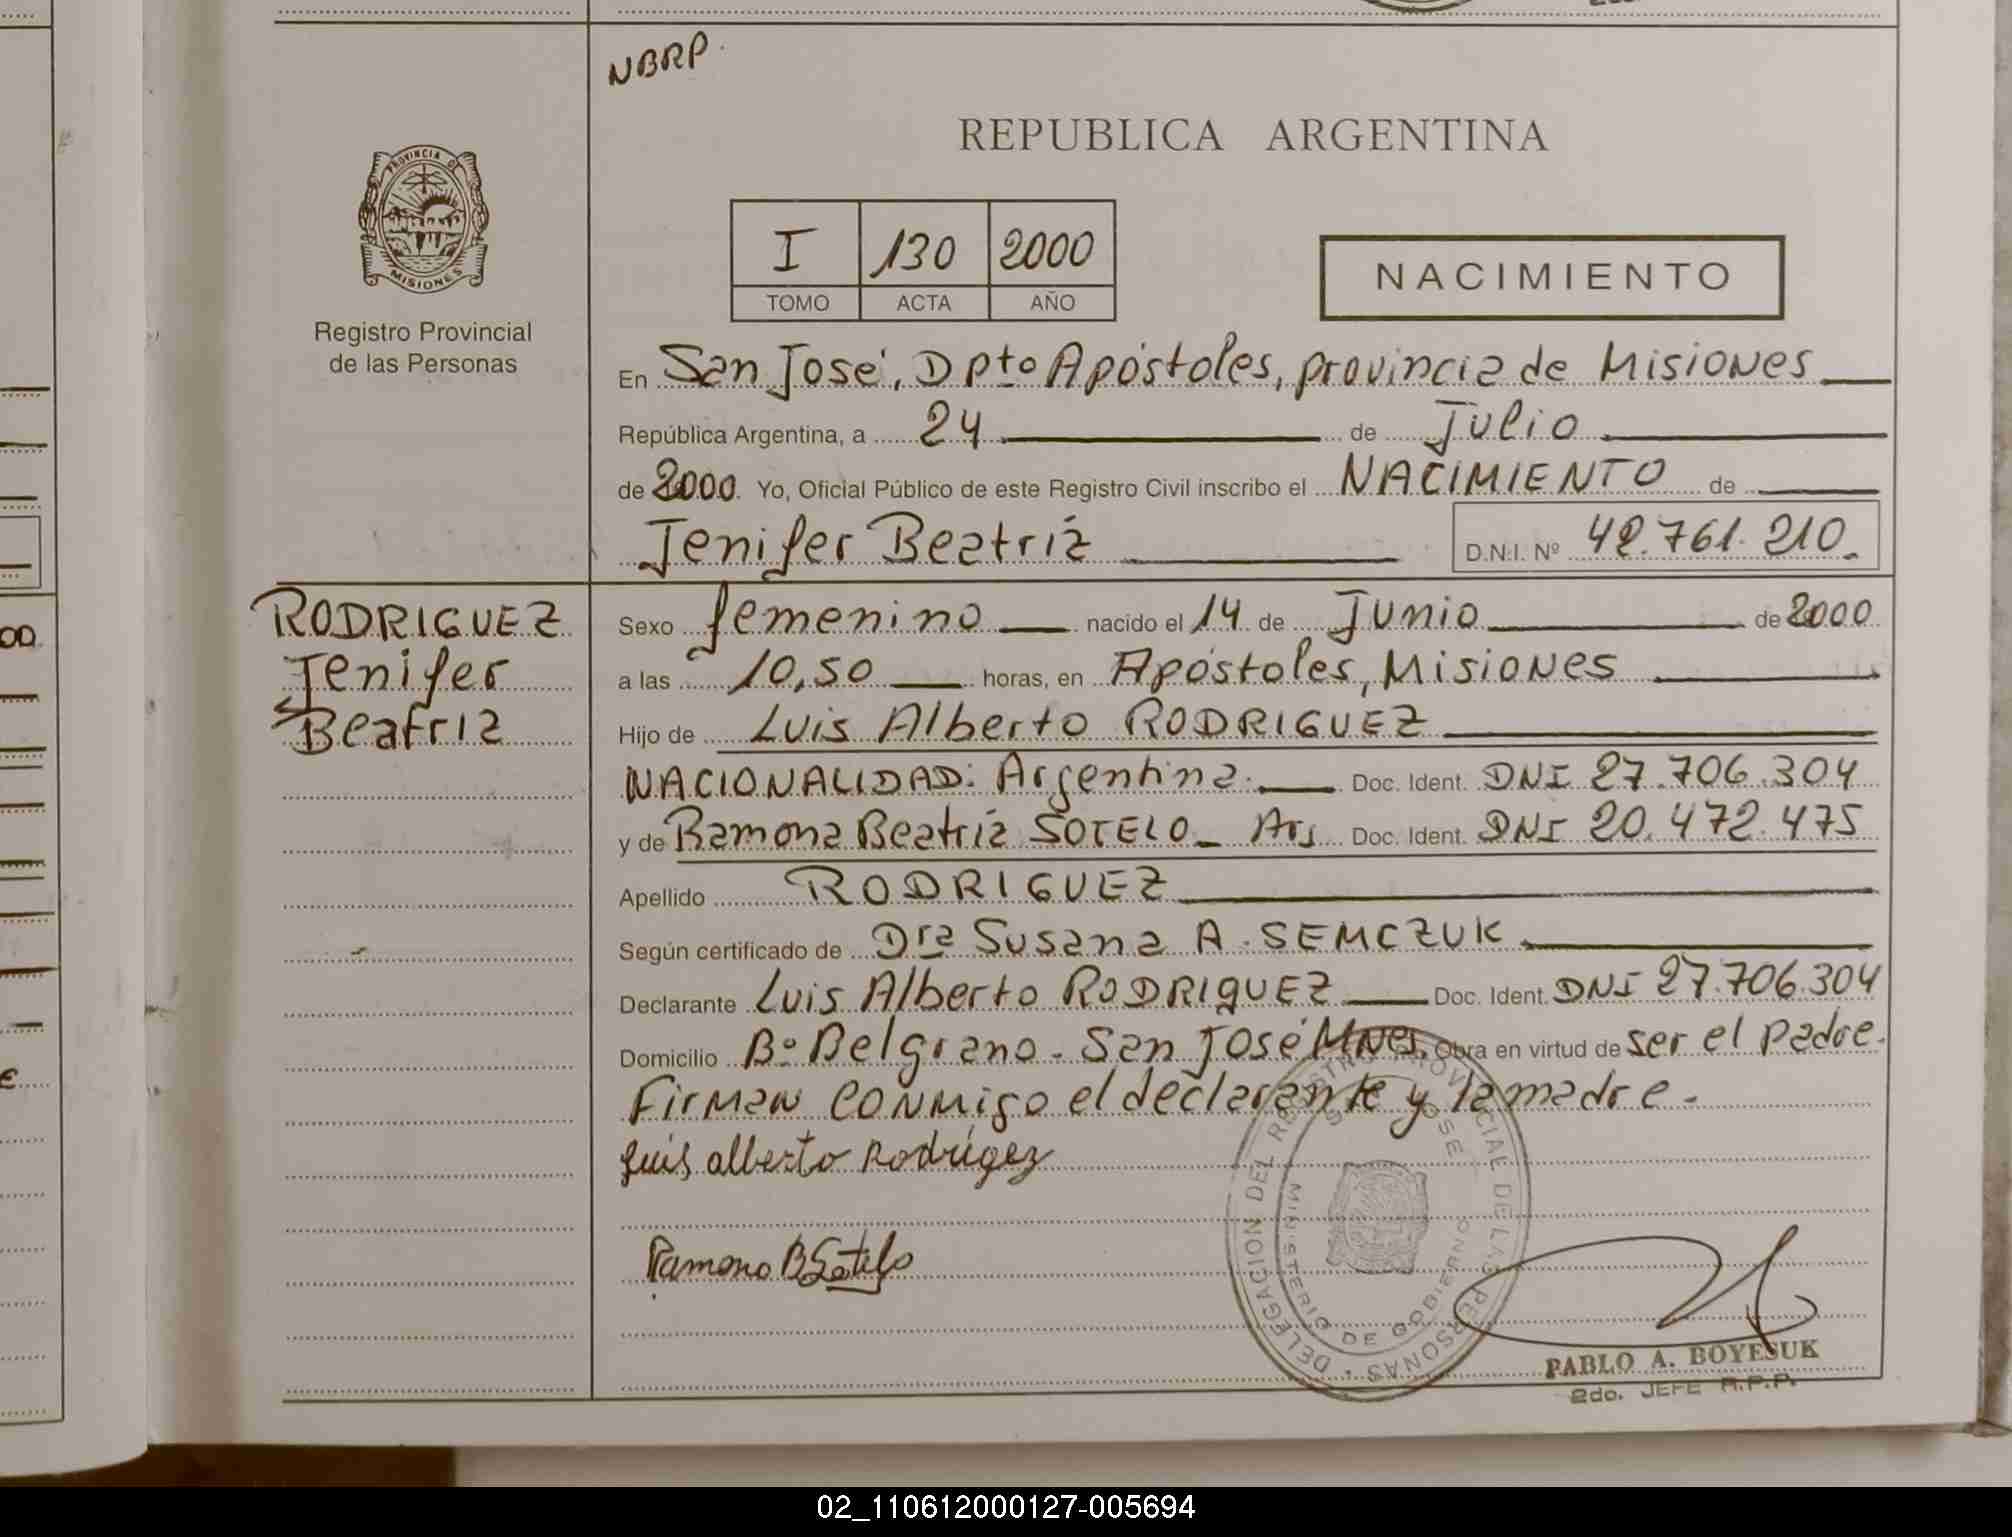 NBRP.
REPUBLICA ARGENTINA
PROVINCIA DE
MISIONES
Registro Provincial
de las Personas
I 130 2000
TOMO ACTA AÑO
NACIMIENTO
En San José, Dpto Apóstoles, provincia de Misiones
República Argentina, a 24 de Julio
de 2000. Yo, Oficial Público de este Registro Civil inscribo el NACIMIENTO de
Jenifer Beatríz
D.N.I. Nº 42.761.210.
RODRIGUEZ
Jenifer
Beatriz
Sexo femenino nacido el 14 de Junio de 2000
a las 10,50 horas, en Apóstoles, Misiones
Hijo de Luis Alberto RODRIGUEZ
NACIONALIDAD: Argentina. Doc. Ident. DNI 27.706.304
y de Ramona Beatríz SOTELO Arg Doc. Ident. DNI 20.472.475
Apellido RODRIGUEZ
Según certificado de Dra Susana A. SEMCZUK
Declarante Luis Alberto RODRIGUEZ Doc. Ident. DNI 27.706.304
Domicilio Bº Belgrano. San José Mnes. Obra en virtud de ser el padre.
Firman conmigo el declarante y la madre.
Luis alberto Rodrigez
Ramona B Sotelo
DELEGACION DEL REGISTRO PROVINCIAL DE LAS PERSONAS
SAN JOSE
MINISTERIO DE GOBIERNO
PABLO A. BOYESUK
2do. JEFE R.P.P.
02_110612000127-005694